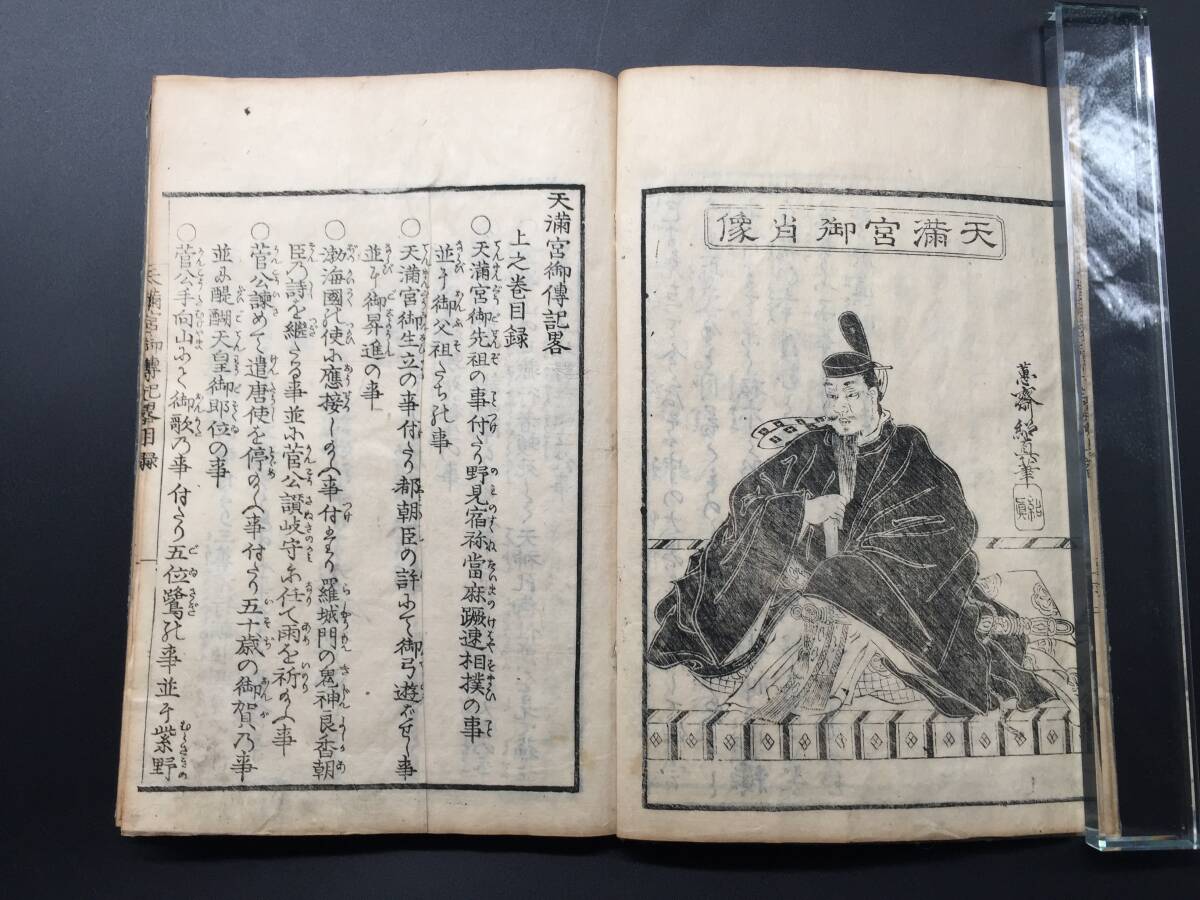 天満宮御肖像
蕙齋紹真筆
紹真
天満宮御傳記畧
上之巻目録
○天満宮御先祖の事付たり野見宿祢當麻蹶速相撲の事
並に御父祖たち乃事
○天満宮御生立の事付たり都朝臣の許にて御弓遊ばせし事
並に御昇進の事
○渤海國の使に應接し給ふ事付たり羅城門の鬼神良香朝
臣乃詩を継たる事並に菅公讃岐守に任て雨を祈給ふ事
○菅公諫めて遣唐使を停給ふ事付たり五十歳の御賀乃事
並に醍醐天皇御即位の事
○菅公手向山にて御歌乃事付たり五位鷺の事並に紫野
天満宮御傳記畧目録
一